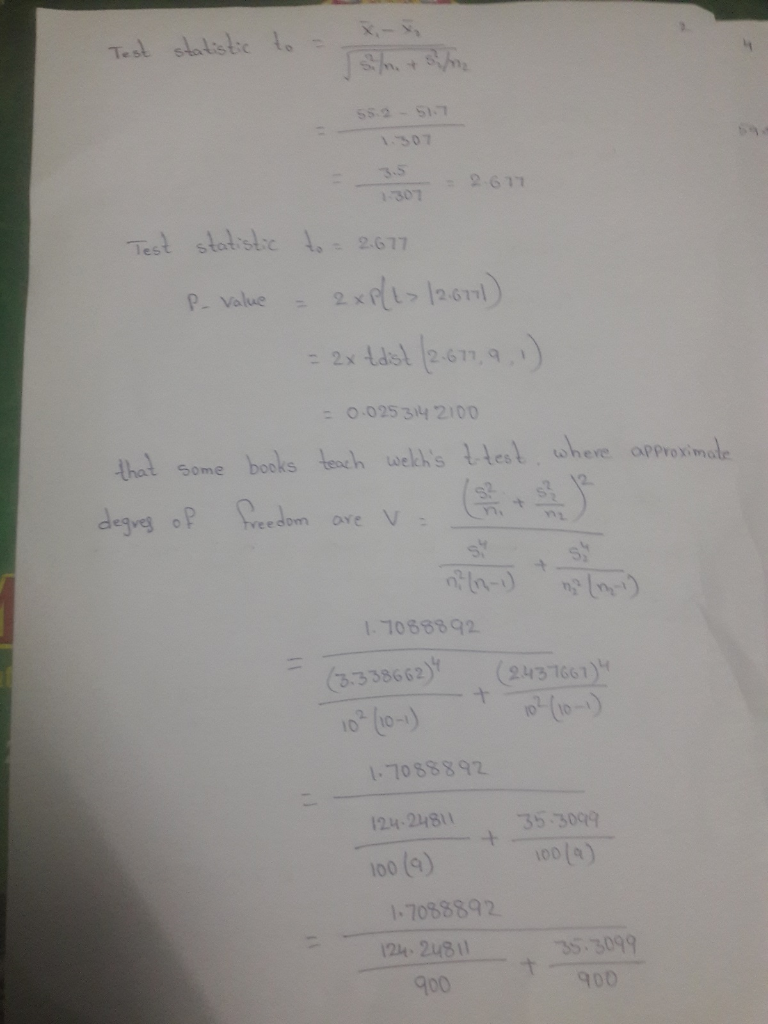 2
4
Test statistic t₀ = (x̄₁ - x̄₂) / √(s₁²/n₁ + s₂²/n₂)
= (55.2 - 51.7) / 1.307
59.
= 3.5 / 1.307 = 2.677
Test statistic t₀ = 2.677
P-value = 2 x P(t > |2.677|)
= 2x tdist (2.677, 9, 1)
= 0.0253142100
that some books teach welch's t-test, where approximate
degres of freedom are V = (s₁²/n₁ + s₂²/n₂)² / (s₁⁴/n₁²(n₁-1) + s₂⁴/n₂²(n₂-1))
= 1.7088892 / ((3.338662)⁴/10²(10-1) + (2.437667)⁴/10²(10-1))
= 1.7088892 / (124.24811/100(9) + 35.3099/100(9))
= 1.7088892 / (124.24811/900 + 35.3099/900)